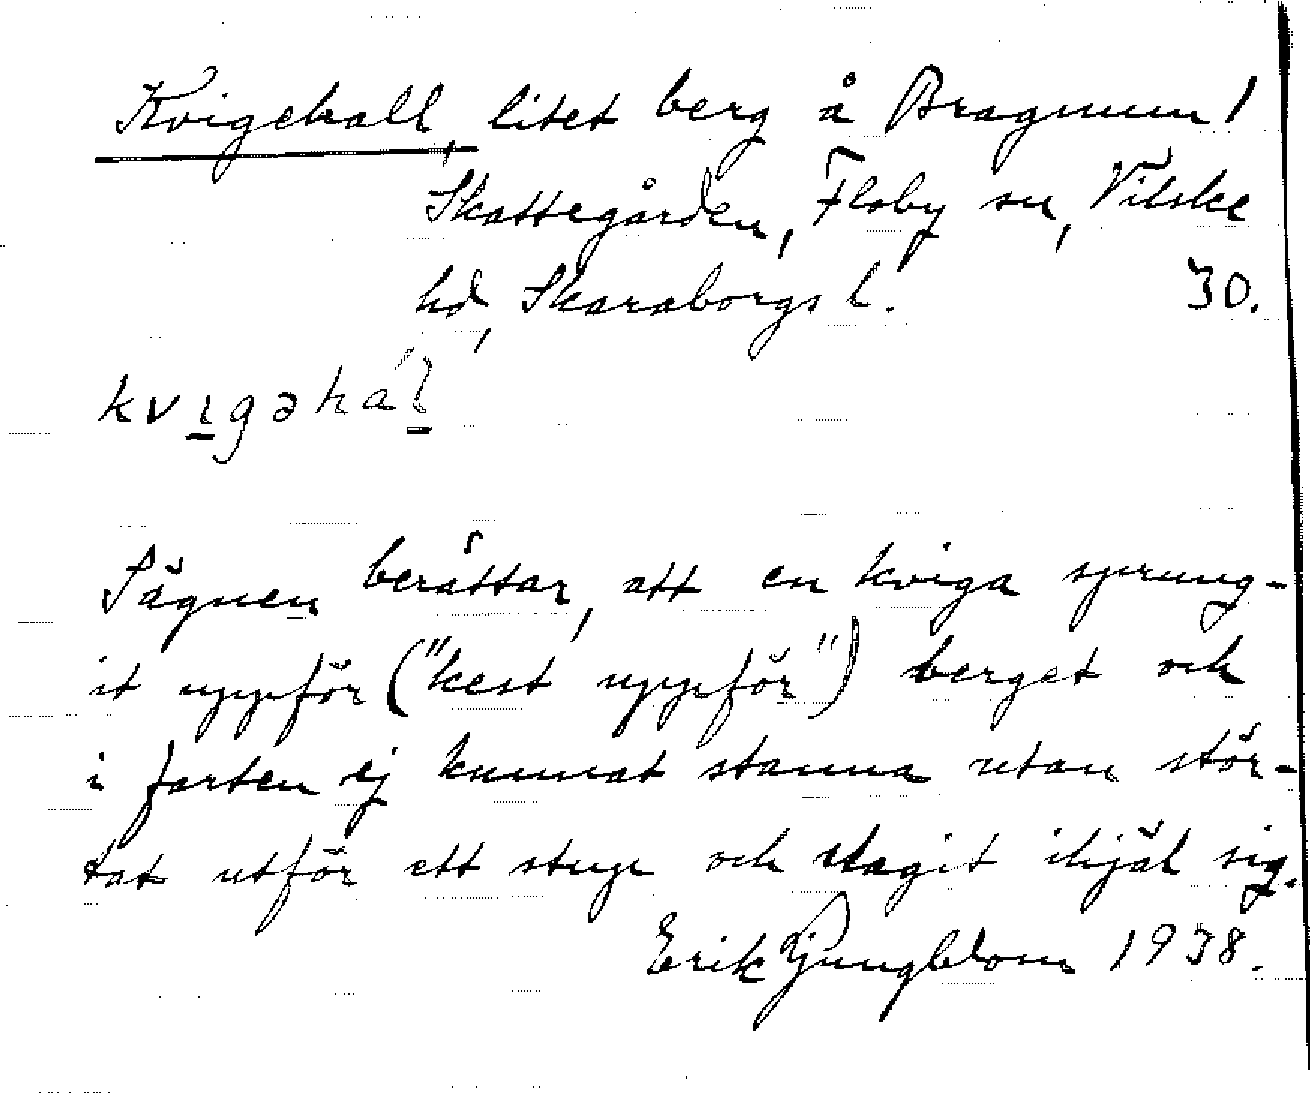 Kvigehall, litet berg å Bragnum 1
Skattegården, Floby sn, Vilske
hd, Skaraborgs l. 30.
kvɩgəhál
Sägnen berättar, att en kviga sprung-
it uppför ("kest uppför") berget och
i farten ej kunnat stanna utan stör-
tat utför ett stup och slagit ihjäl sig.
Erik Ljungblom 1938.